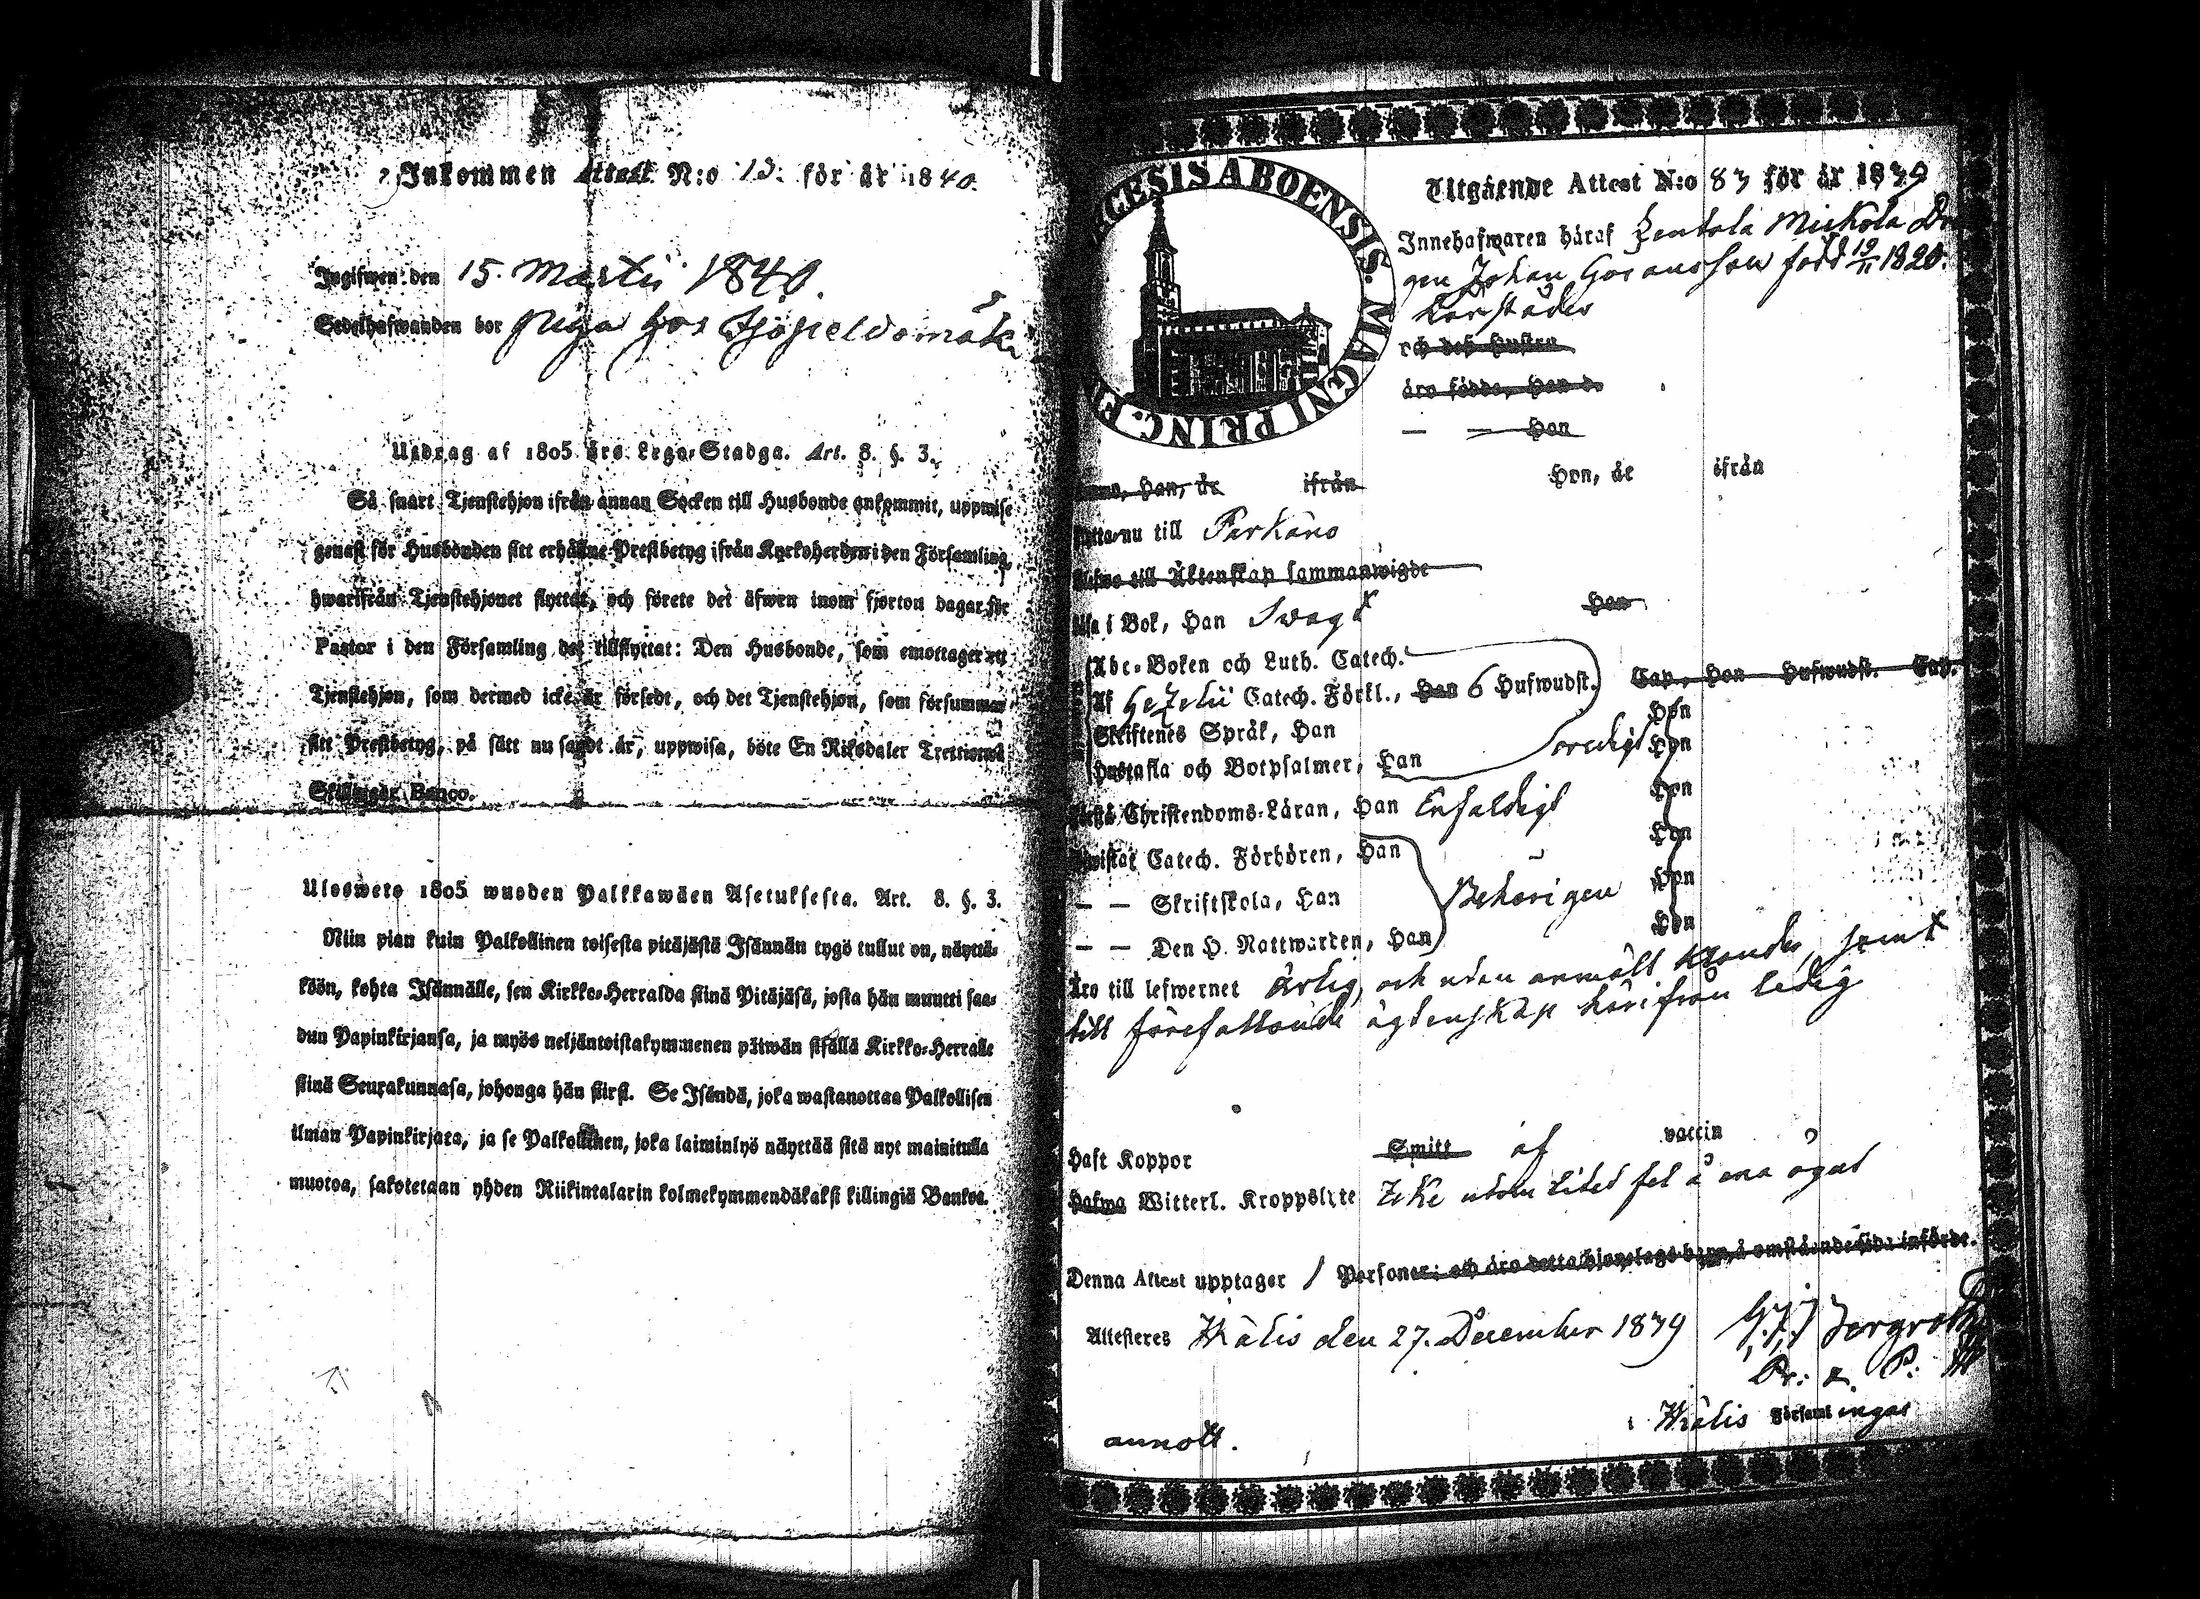 Inkommen Attest N:o 13. för år 1840.
Ingifwen den 15. Martii 1840.
Sedelhafwanden bor hos
Utdrag af 1805 års Lego-Stadga. Art. 8. §. 3.
Så snart Tjenstehjon ifrån annan Socken till Husbonde ankommit, uppwise
genast för Husbonden sitt erhållne Prestbetyg ifrån Kyrkoherden i den Församling,
hwarifrån Tjenstehjonet flyttat, och förete det äfwen inom fjorton dagar för
Pastor i den Församling det tillflyttat: Den Husbonde, som emottager ett
Tjenstehjon, som dermed icke är försedt, och det Tjenstehjon, som försummar,
sitt Prestbetyg, på sätt nu sagdt är, uppwisa, böte En Riksdaler Trettiotwå
Skillingar Banco.
Ulosweto 1805 wuoden Palkkawäen Asetuksesta. Art. 8. §. 3.
Niin pian kuin Palkollinen toisesta pitäjästä Isännän tygö tullut on, näyttä-
köön, kohta Isännälle, sen Kirkko-Herralda siinä Pitäjäsä, josta hän muutti saa-
dun Papinkirjansa, ja myös neljäntoistakymmenen päiwän sisällä Kirkko-Herralle
siinä Seurakunnasa, johonga hän siirsi. Se Isändä, joka wastanottaa Palkollisen
ilman Papinkirjata, ja se Palkollinen, joka laiminlyö näyttää sitä nyt mainitulla
muotoa, sakotetaan yhden Riikintalarin kolmekymmendäkaksi killingiä Bankoa.
CESIS ABOENSIS. MAGNI PRINC. F
Utgående Attest N:o 83 för år 1839
Innehafwaren häraf Mickola Dren
gen Johan Göransson född 12/11 1820.
härstädes
och deß hustru
äro födde, Han d.
— — Hon
Han, år ifrån Hon, år ifrån
nu till Parkano
till Äktenskap sammanwigde
i Bok, Han Swagt Hon
Abc-Boken och Luth. Catech.
Af Gezelii Catech. Förkl., Han 6 Hufwudst. Cap., Hon Hufwudst. Cap.
Skriftenes Språk, Han Hon
Hustafla och Botpsalmer, Han Hon
Christendoms-Läran, Han Enfaldigt Hon
Catech. Förhören, Han Hon
— — Skriftskola, Han Behörigen Hon
— — Den H. Nattwarden, Han Hon
Äro till lefwernet Ärlig, och utan anmält klander, samt
till förefallande ägtenskap härifrån ledig
Haft Koppor Smitt af vaccin
Hafwa Witterl. Kroppslyte Icke utom litet fel å ena ögat
Denna Attest upptager 1 Personer; och äro detta hjonelags barn å omstående sida införde.
Attesteres den 27. December 1839
Församlingar
annott.